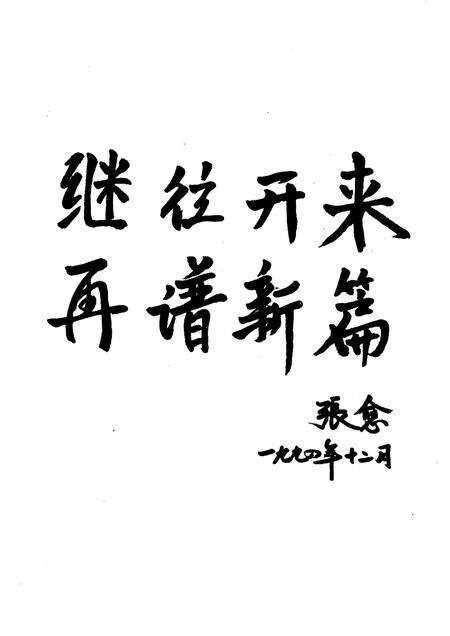 继往开来
再谱新篇
張愈
一九九四年十二月